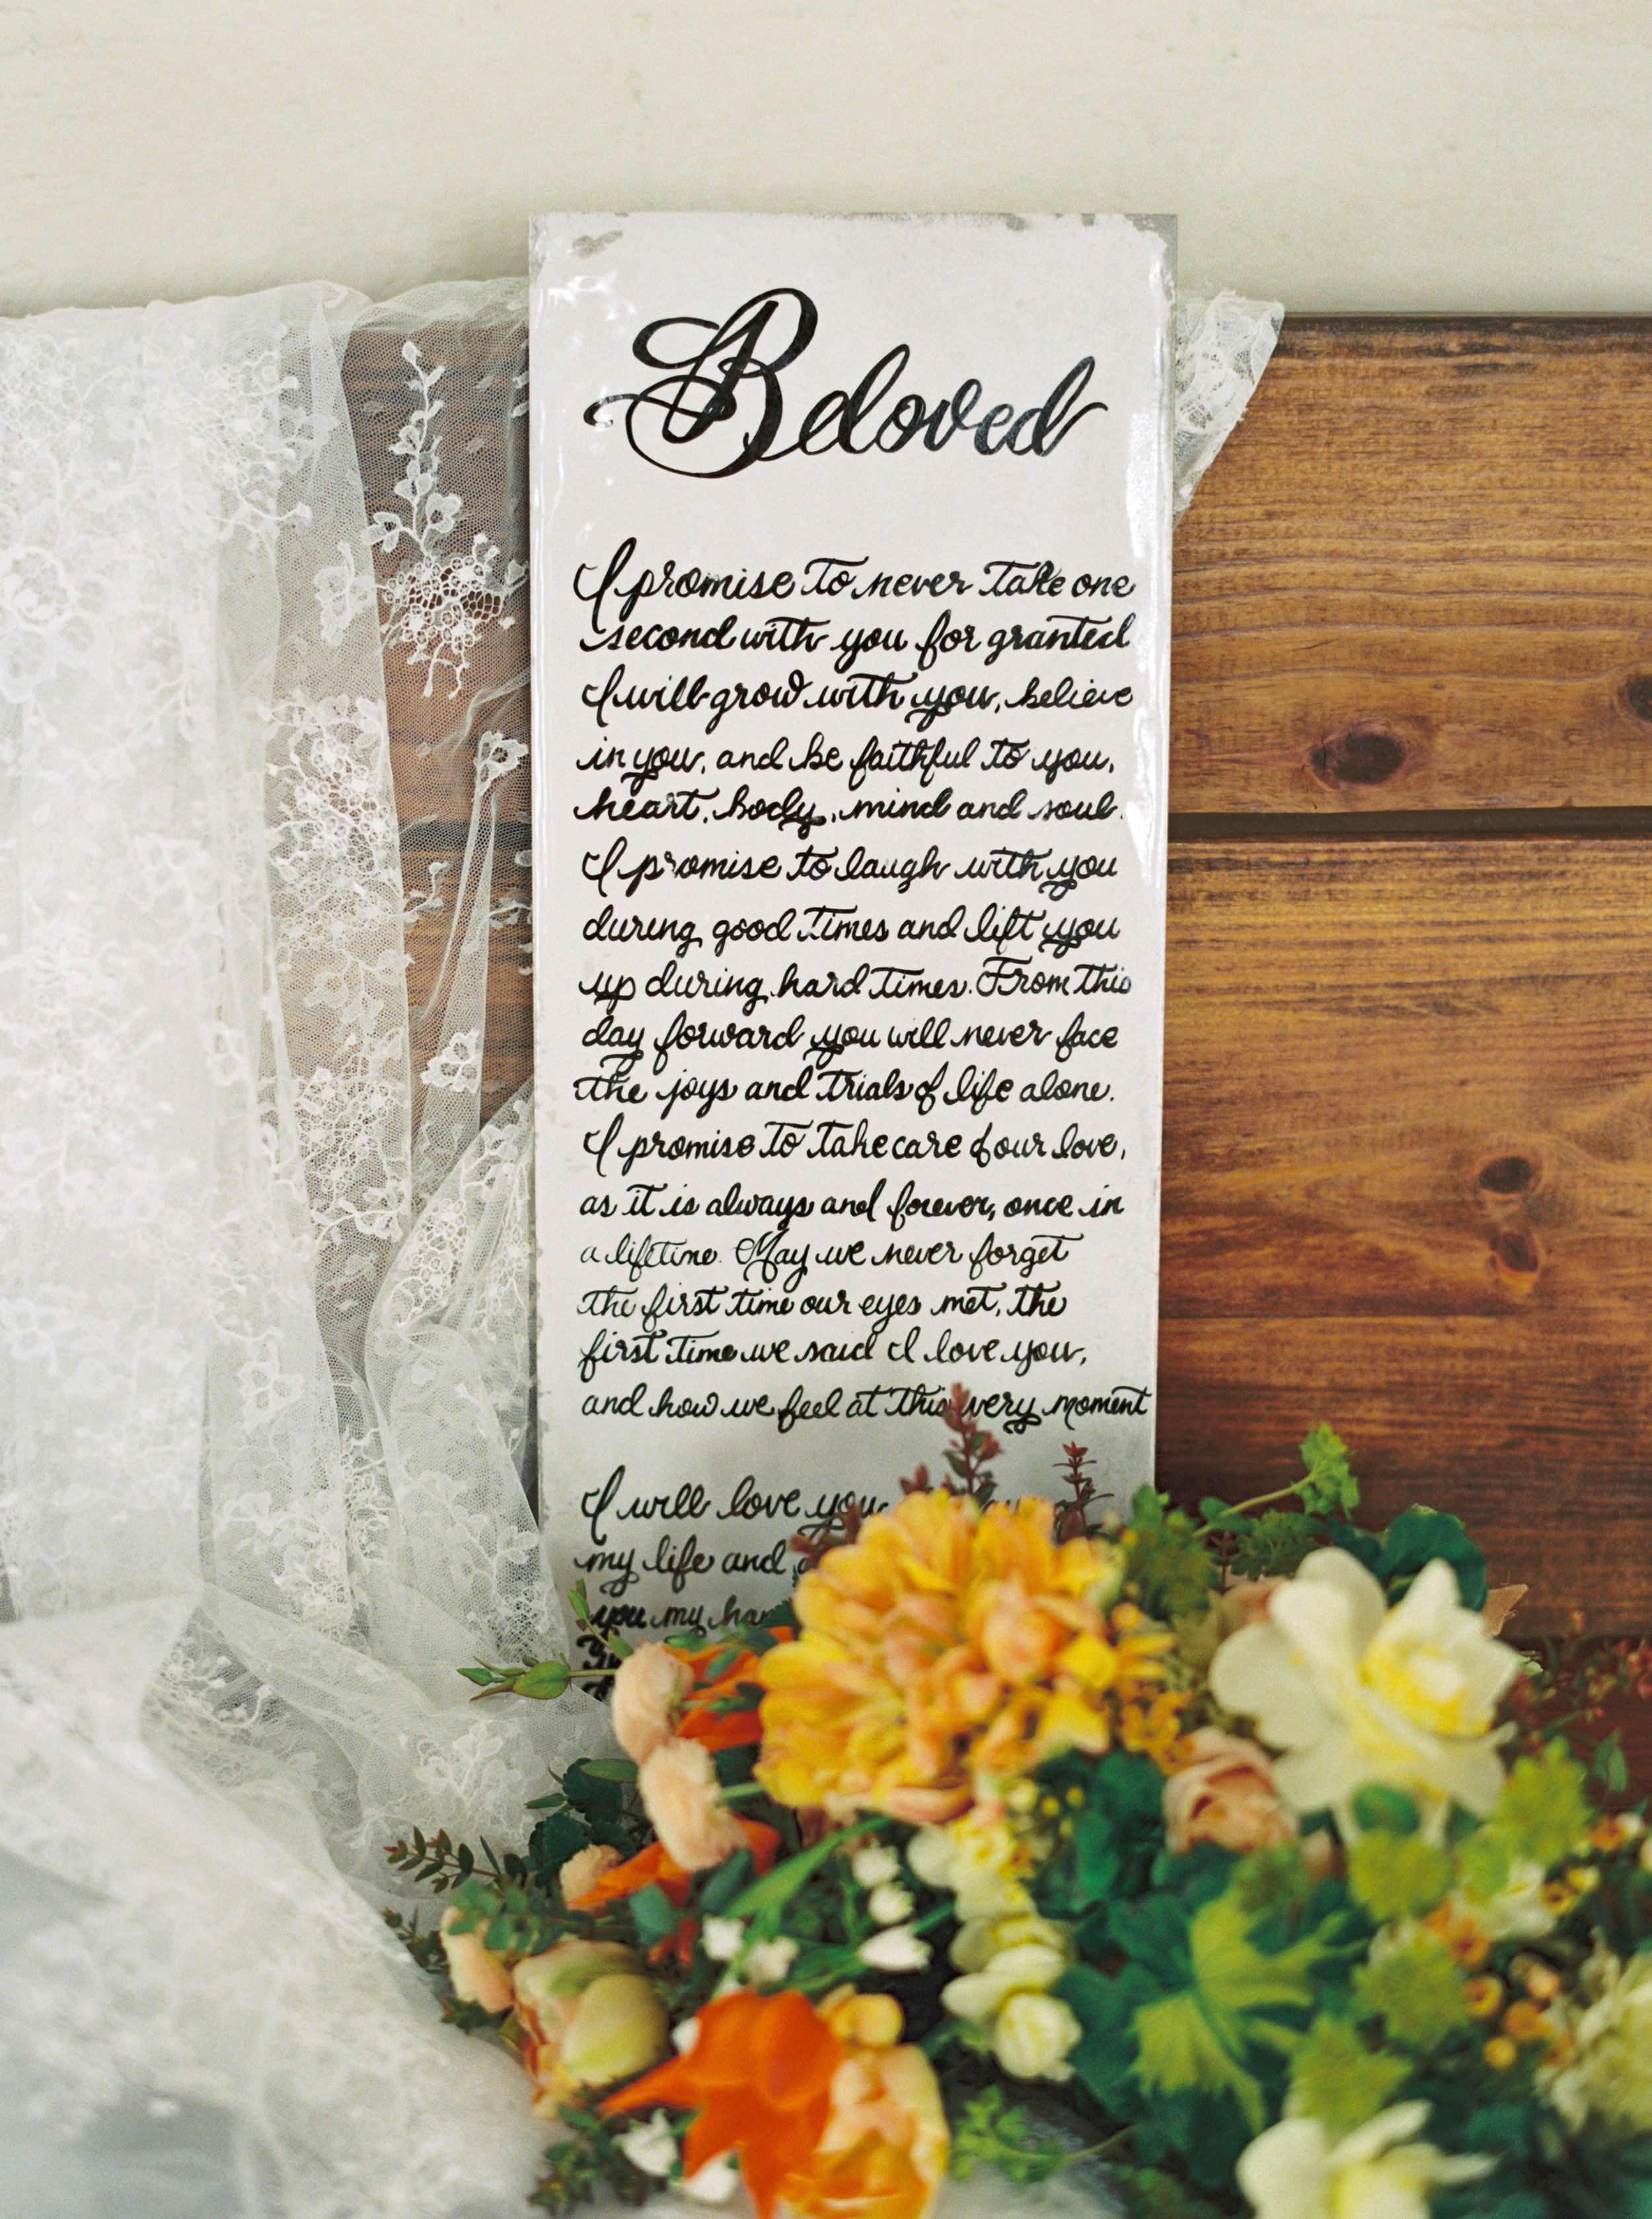 Beloved
I promise to never take one
second with you for granted
I will grow with you, believe
in you, and be faithful to you,
heart, body, mind and soul.
I promise to laugh with you
during good times and lift you
up during hard times. From this
day forward you will never face
the joys and trials of life alone.
I promise to take care of our love,
as it is always and forever, once in
a lifetime. May we never forget
the first time our eyes met, the
first time we said I love you,
and how we feel at this very moment
I will love you
my life and
you my